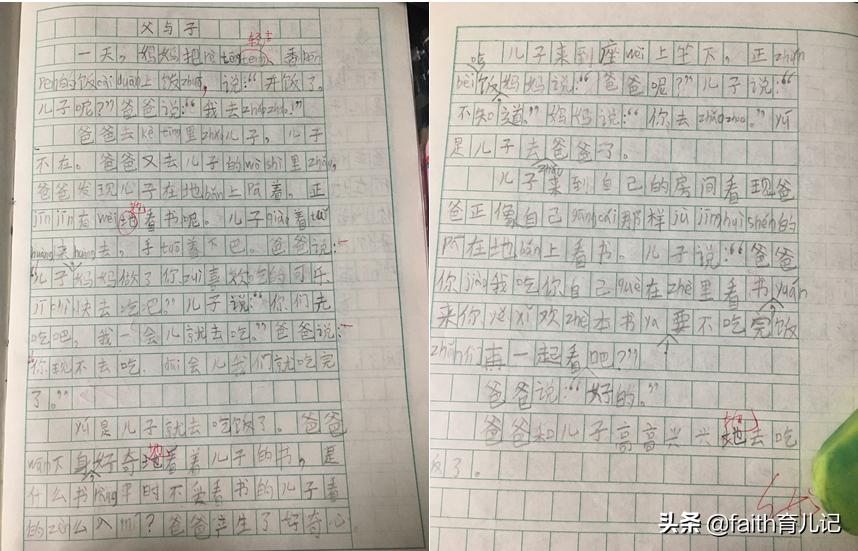 父与子
一天，妈妈把rè téngténg，香pēn
pēn的饭cài duān上饭zhuō，说：“开饭了。
儿子呢？”爸爸说：“我去zhǎozhao。”
爸爸去kè tīng里zhǎo儿子，儿子
不在。爸爸又去儿子的wò shì里zhǎo，
爸爸发现儿子在地bǎn上pā着。正
jīn jīn有wèi地看书呢。儿子qiào着tuǐ
huàng来huàng去，手tuō着下巴。爸爸说：
“儿子妈妈做了你zuì喜欢吃的可乐
jī chì快去吃吧。”儿子说：“你们先
吃吧，我一会儿就去吃。”爸爸说：
你现不去吃，会儿我们就吃完
了。”
yú是儿子就去吃饭了。爸爸
wān下身好奇地看着儿子的书，是
什么书ràng平时不爱看书的儿子看
的zěn么入mí？爸爸产生了好奇心
儿子来到座wèi上坐下。正zhǔn
bèi吃饭妈妈说：“爸爸呢？”儿子说：“
不知道。”妈妈说：“你去zhǎozhao。”yú
是儿子去zhǎo爸爸了。
儿子来到自己的房间看现爸
爸正像自己gāngcái那样jù jīnghuì shén的
pā在地bǎn上看书。儿子说：“爸爸
你jiào我吃你自己què在zhè里看书yuán
来你yě xǐ欢zhè本书ya要不吃完饭
zán们再一起看吧？”
爸爸说：“好的。”
爸爸和儿子高高兴兴地去吃
饭了。
轻声
头条 @faith育儿记